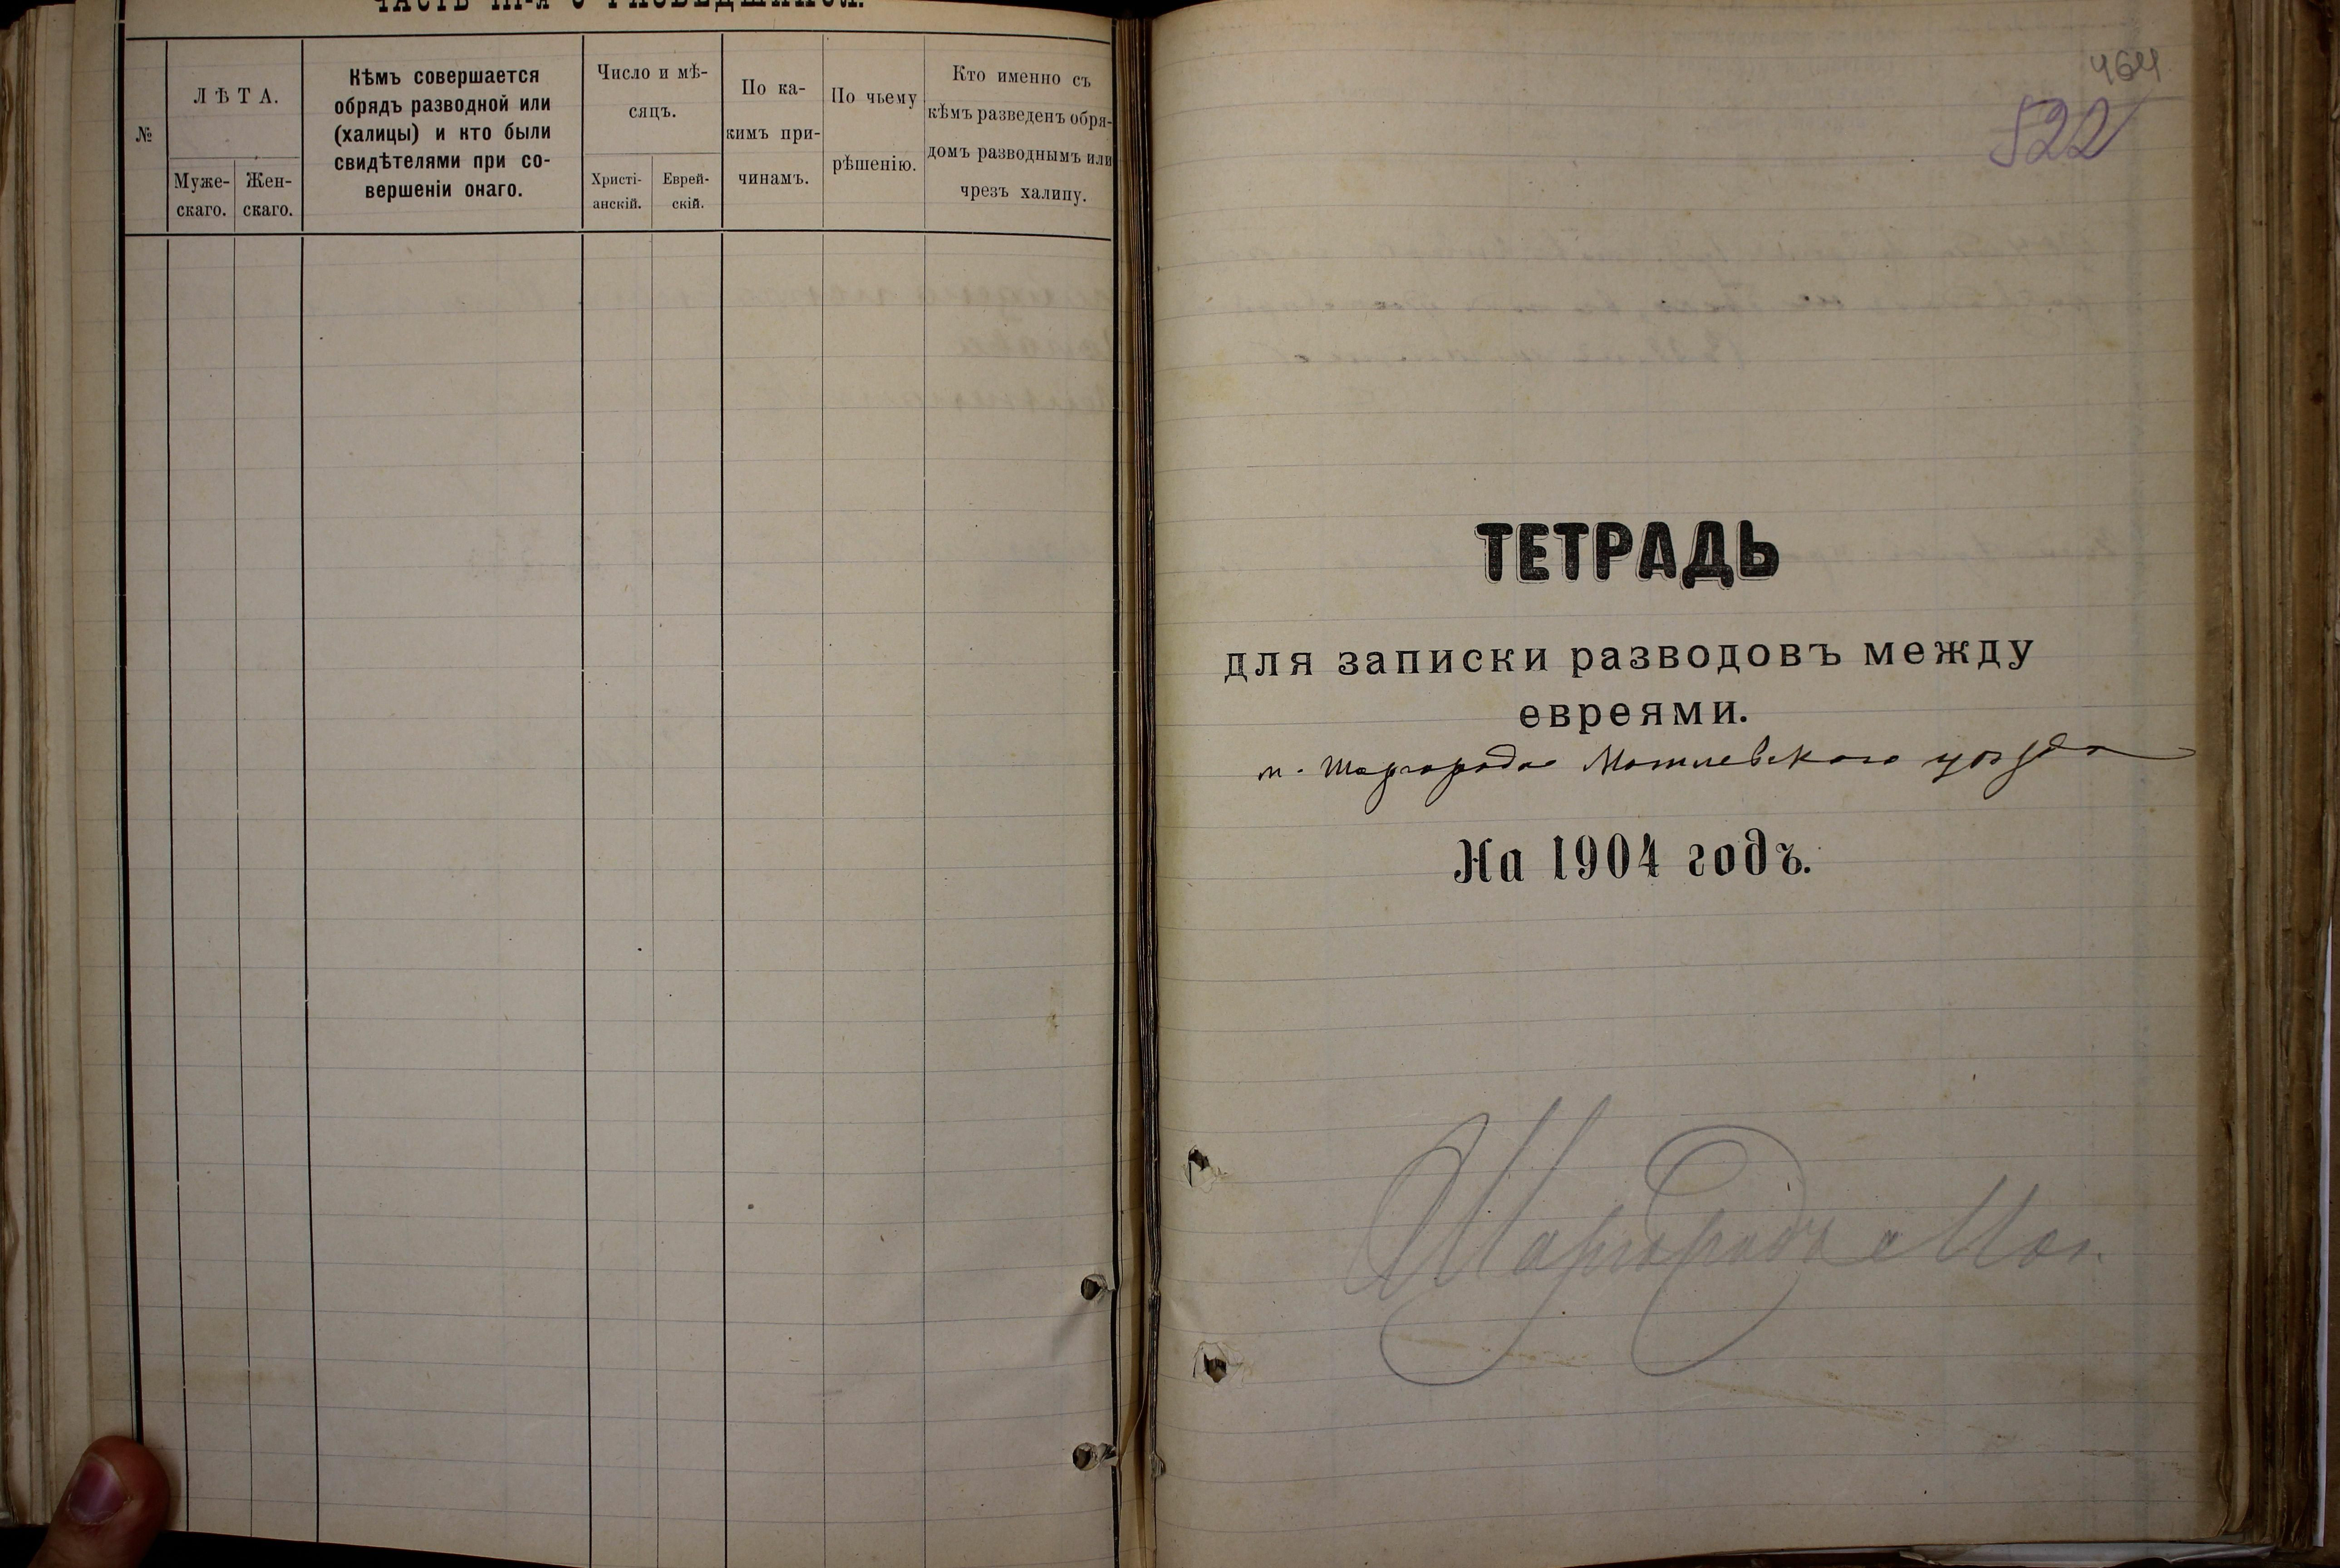 ЧАСТЬ III-я О РАЗВЕДШИХСЯ.
№
ЛѢТА.
Муже-
скаго.
Жен-
скаго.
Кѣмъ совершается
обрядъ разводной или
(халицы) и кто были
свидѣтелями при со-
вершеніи онаго.
Число и мѣ-
сяцъ.
Христі-
анскій.
Еврей-
скій.
По ка-
кимъ при-
чинамъ.
По чьему
рѣшенію.
Кто именно съ
кѣмъ разведенъ обря-
домъ разводнымъ или
чрезъ халицу.
464
522
ТЕТРАДЬ
для записки разводовъ между
евреями.
м. Шаргорода Могилевскаго уѣзда
На 1904 годъ.
Шаргородъ Мог.